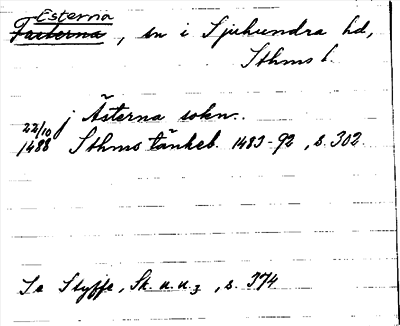 Esterna
Fasterna, sn i Sjuhundra hd,
Sthms l.
22/10 j Ästerna sokn.
1488 Sthms tänkeb. 1483-92, s. 302.
Se Styffe, Sk. u. u. 3, s. 374